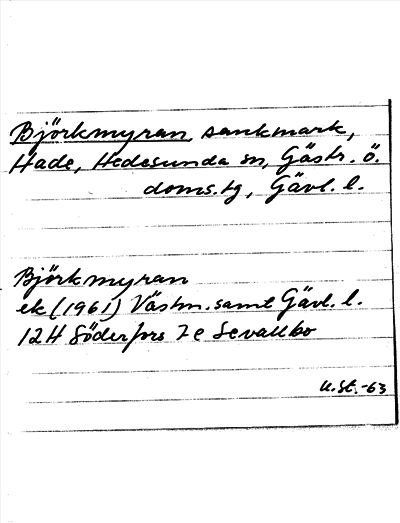 Björkmyran, sankmark,
Hade, Hedesunda sn, Gästr. ö.
doms.tg, Gävl. l.
Björkmyran
ek (1961) Västm. samt Gävl. l.
12H Söderfors 7e Sevallbo
U.St.-63